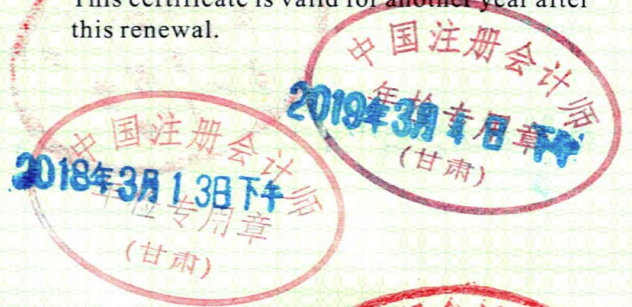 This certificate is valid for another year after
this renewal.
中国注册会计师
年检专用章
(甘肃)
2019年3月
下午
中国注册会计师
2018年3月13日下午
年检专用章
(甘肃)